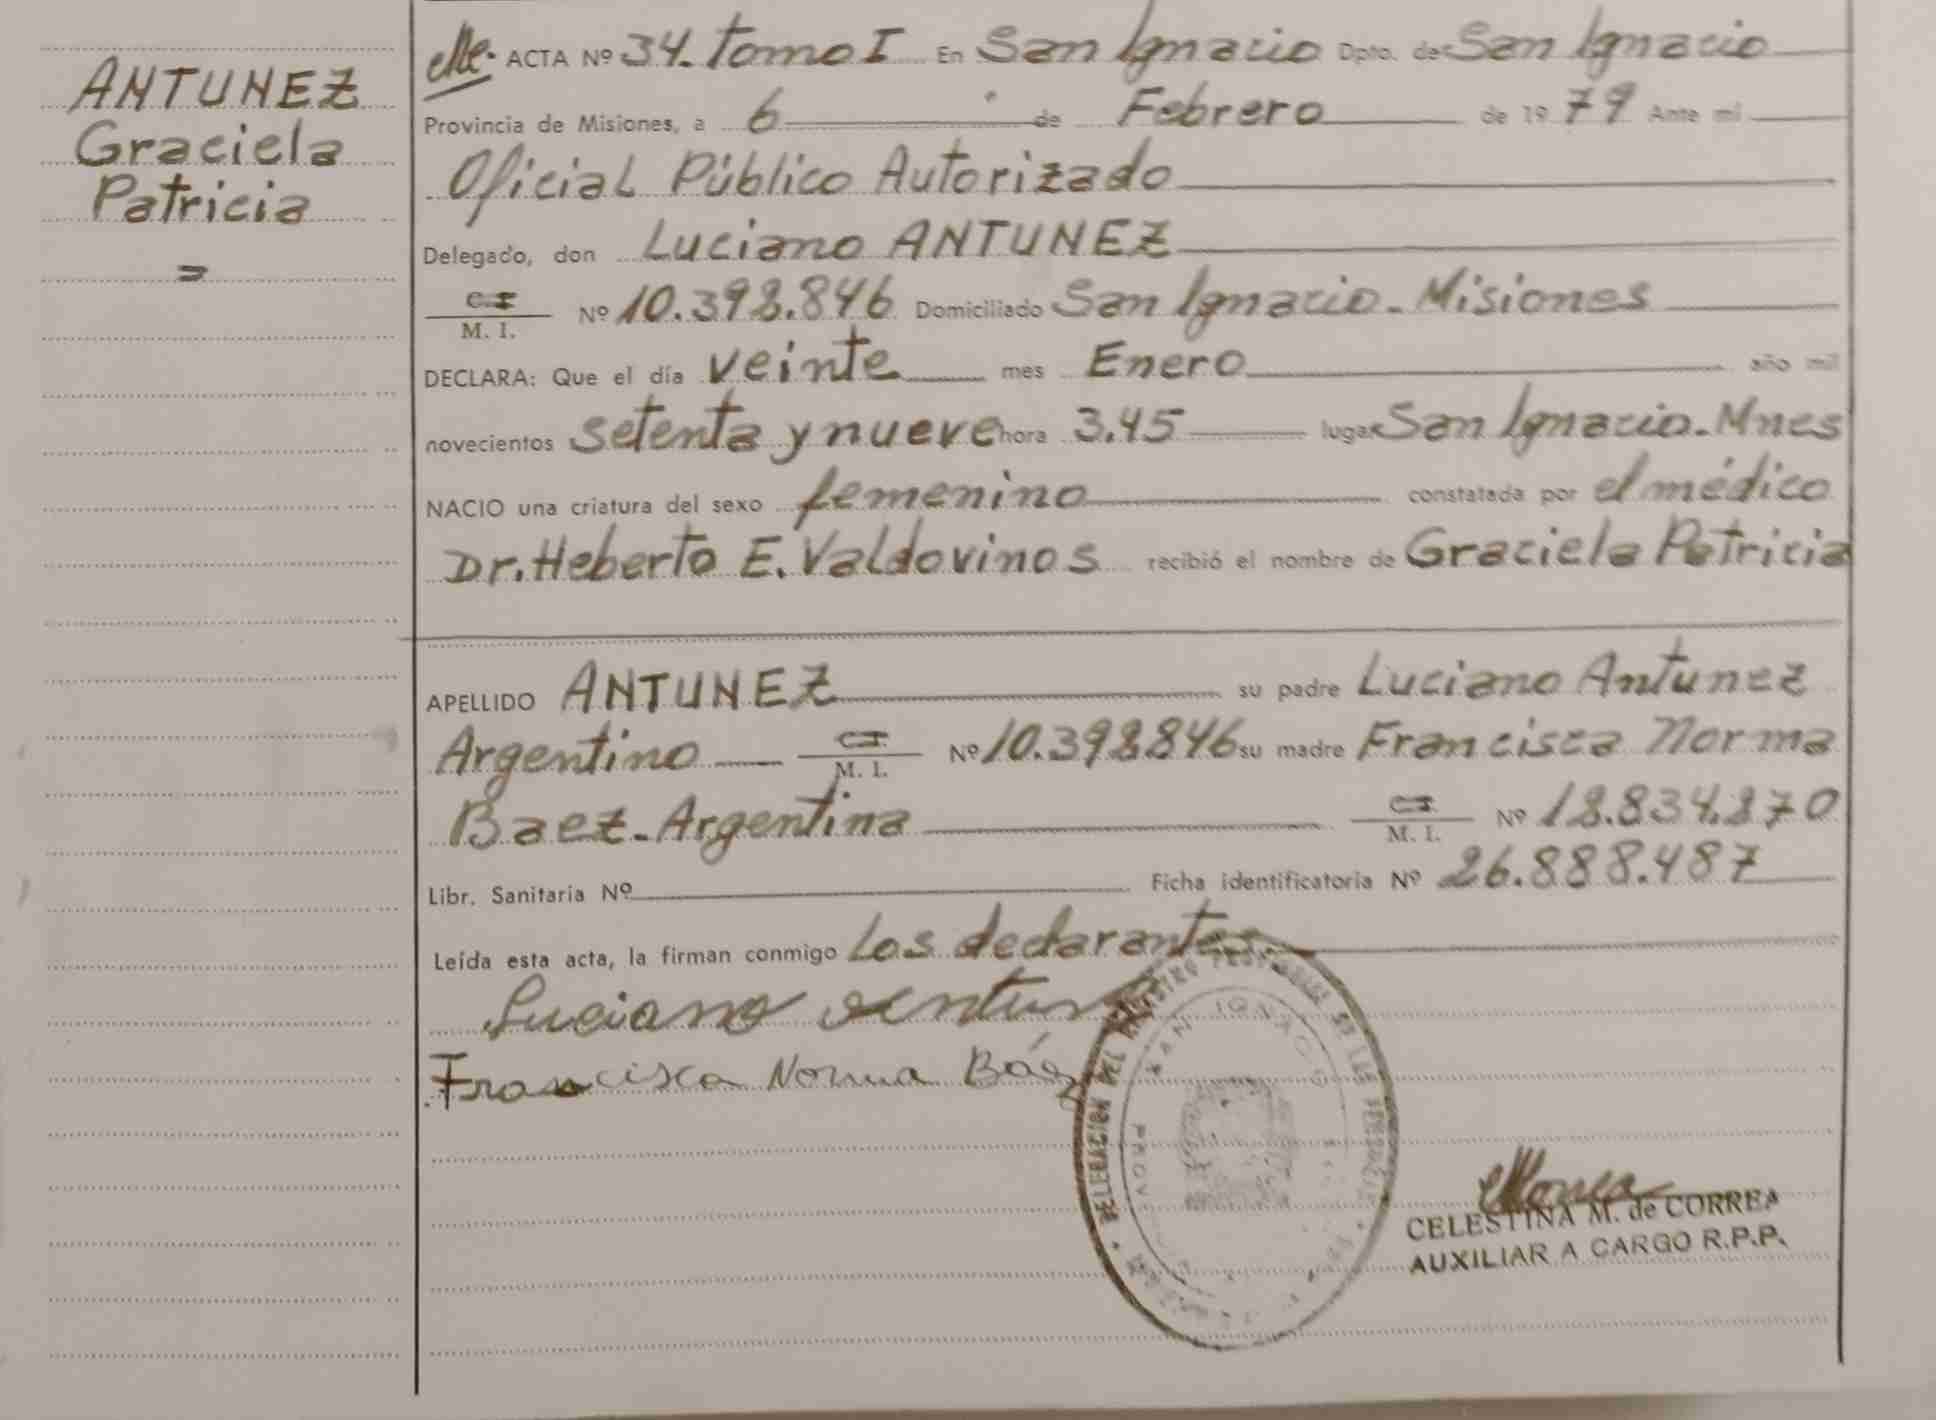 ANTUNEZ
Graciela
Patricia
=
ACTA Nº 34. tomo I En San Ignacio Dpto. de San Ignacio
Provincia de Misiones, a 6 de Febrero de 1979 Ante mi
Oficial Público Autorizado
Delegado, don Luciano ANTUNEZ
C.I.
M. I. Nº 10.398.846 Domiciliado San Ignacio - Misiones
DECLARA: Que el día veinte mes Enero año mil
novecientos setenta y nueve hora 3.45 lugar San Ignacio - Mnes
NACIO una criatura del sexo femenino constatada por el médico
Dr. Heberto E. Valdovinos recibió el nombre de Graciela Patricia
APELLIDO ANTUNEZ su padre Luciano Antunez
Argentino C.I. M. I. Nº 10.398846 su madre Francisca Norma
Baez - Argentina C.I. M. I. Nº 18.834.870
Libr. Sanitaria Nº Ficha identificatoria Nº 26.888.487
Leída esta acta, la firman conmigo los declarantes
Luciano Antun
Francisca Norma Báez
DELEGACION DEL REGISTRO PROVINCIAL DE LAS PERSONAS
SAN IGNACIO
CELESTINA M. de CORREA
AUXILIAR A CARGO R.P.P.